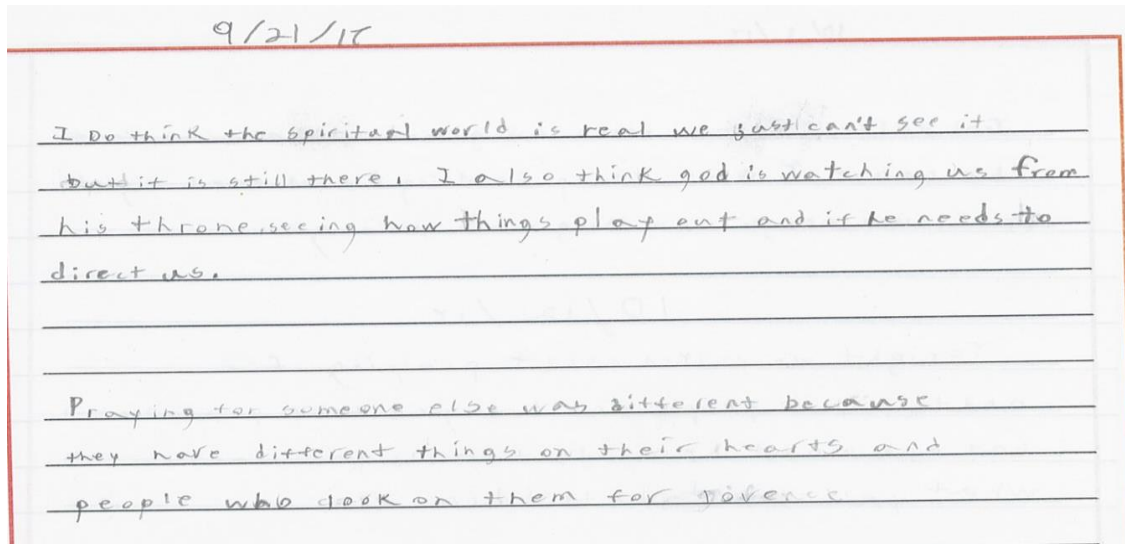 9/21/15
I Do think the spiritual world is real we just can't see it
but it is still there. I also think god is watching us from
his throne seeing how things play out and if he needs to
direct us.
Praying for someone else was different because
they have different things on their hearts and
people who look on them for